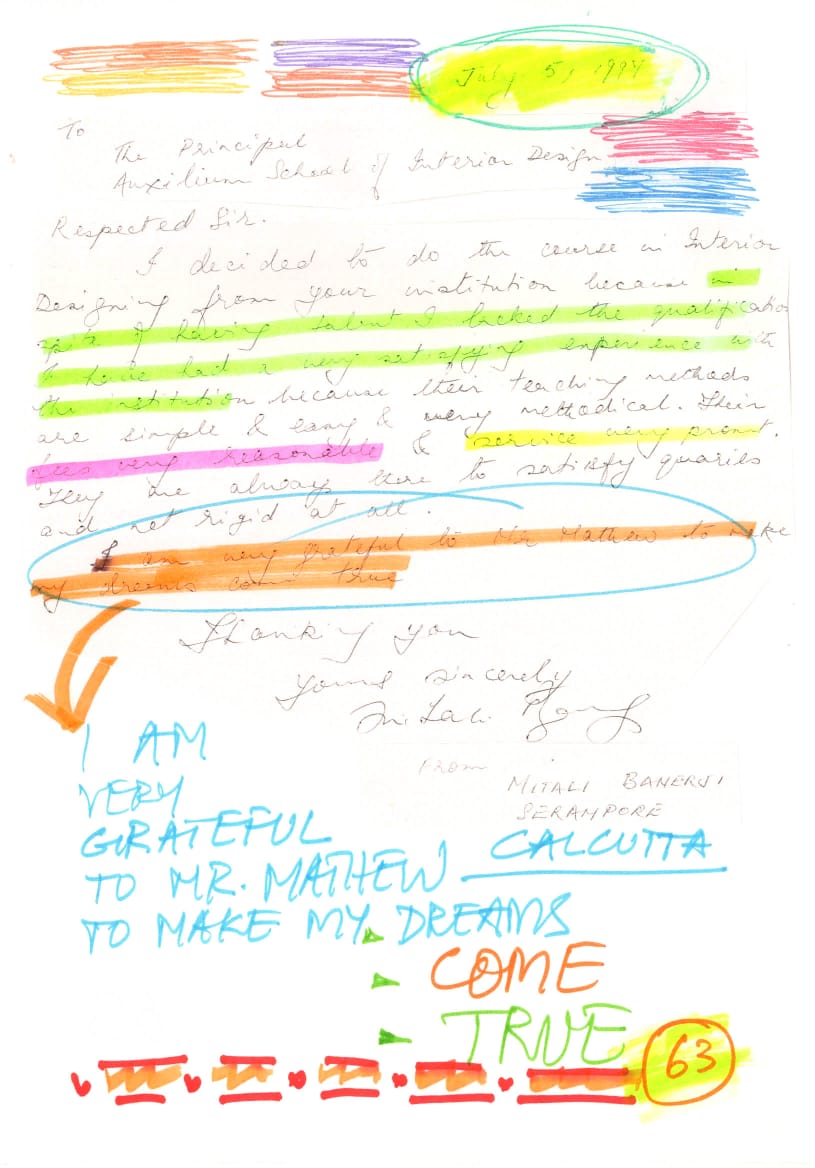 July 5, 1994
To
The Principal
Auxilium School of Interior Design
Respected Sir.
I decided to do the course in Interior
Designing from your institution because in
spite of having talent I lacked the qualification
I have had a very satisfying experience with
the institution because their teaching methods
are simple & easy & very methodical. Their
fees very reasonable & service very promt.
They are always there to satisfy quaries
and not rigid at all.
I am very grateful to Mr Mathew to make
my dreams come true
Thanking you
Yours sincerely
Mitali
From
MITALI BANERJI
SERAMPORE
CALCUTTA
I AM
VERY
GRATEFUL
TO MR. MATHEW
TO MAKE MY DREAMS
COME
TRUE
63